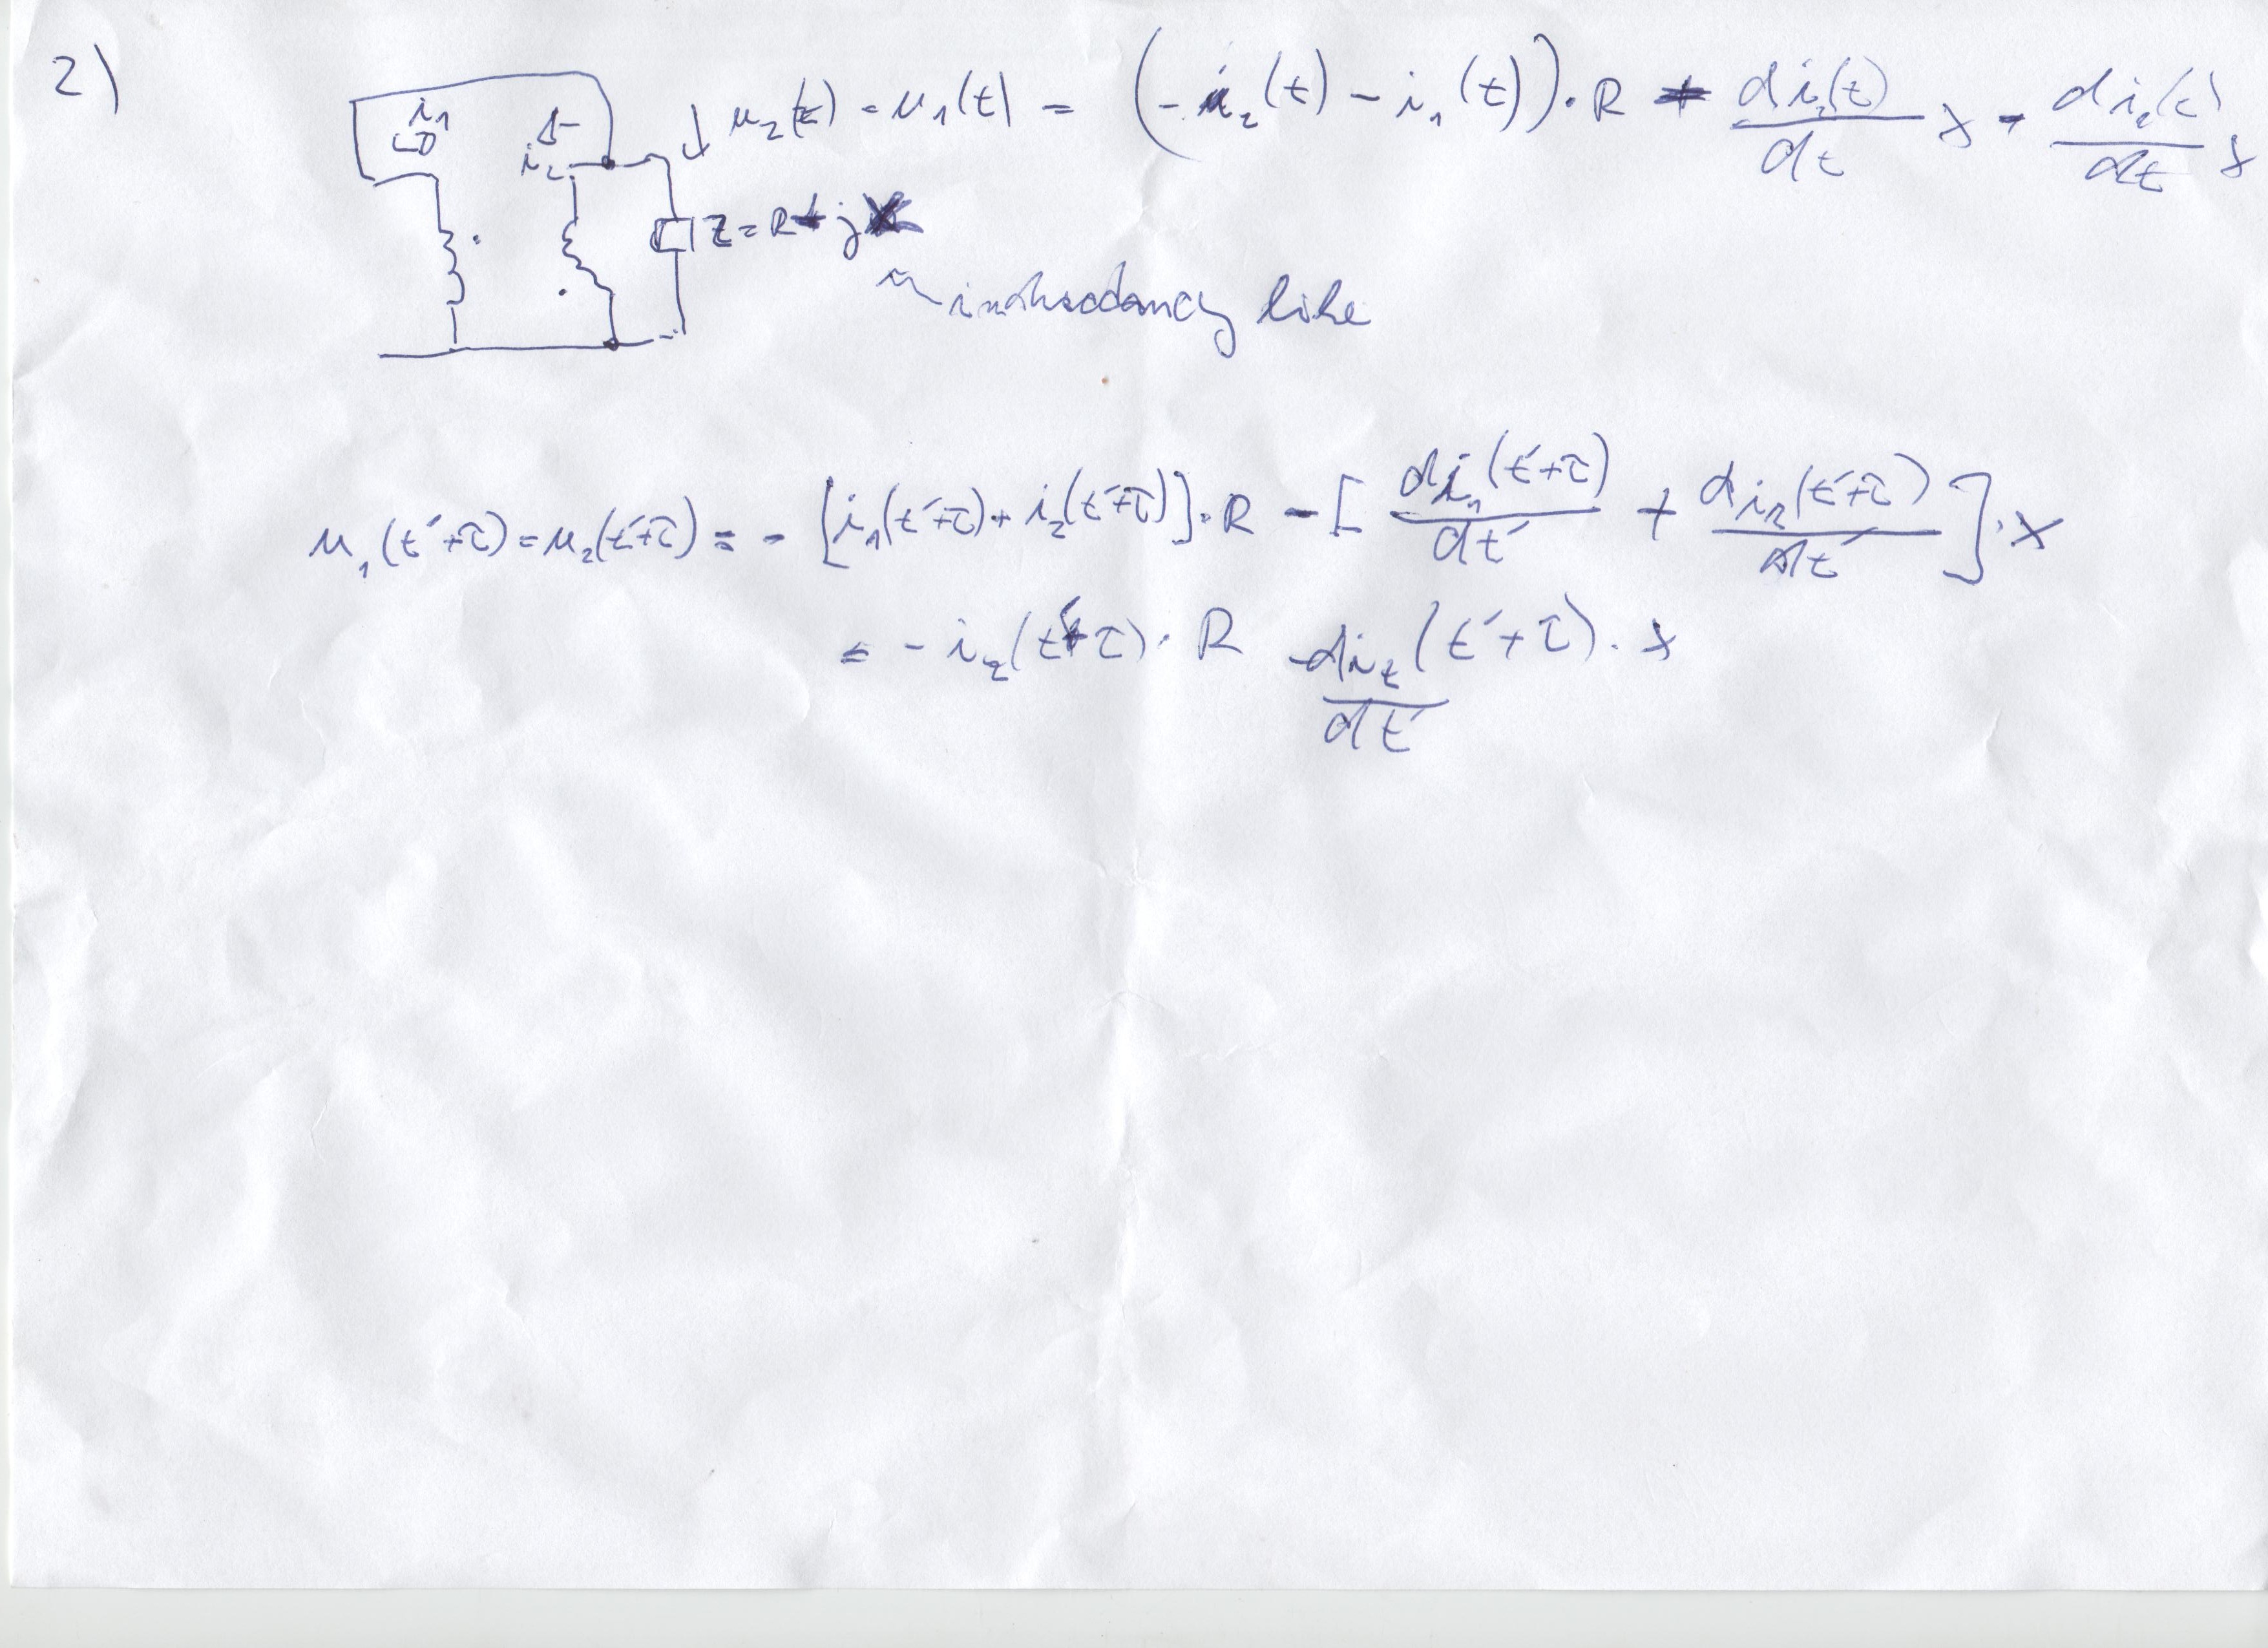 2)
i₁ i₂ ↓ u₂(t) = u₁(t) = (-i₂(t) - i₁(t))·R - di₁(t)/dt X - di₂(t)/dt X
Z = R + jX
like
u₁(t′+τ) = u₂(t′+τ) = - [i₁(t′+τ) + i₂(t′+τ)]·R - [di₁(t′+τ)/dt′ + di₂(t′+τ)/dt′]·X
= - i₂(t′+τ)·R - di₂/dt′ (t′+τ)·X